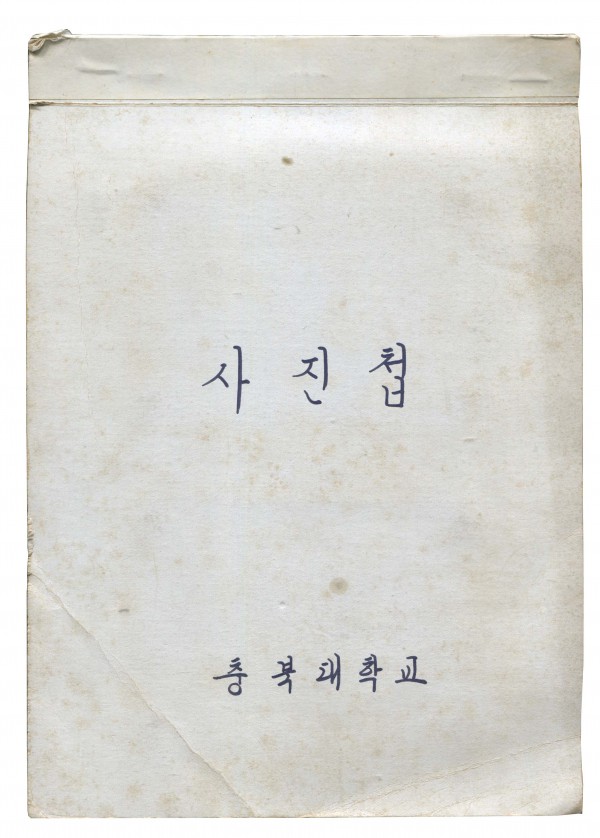 사진첩
충북대학교